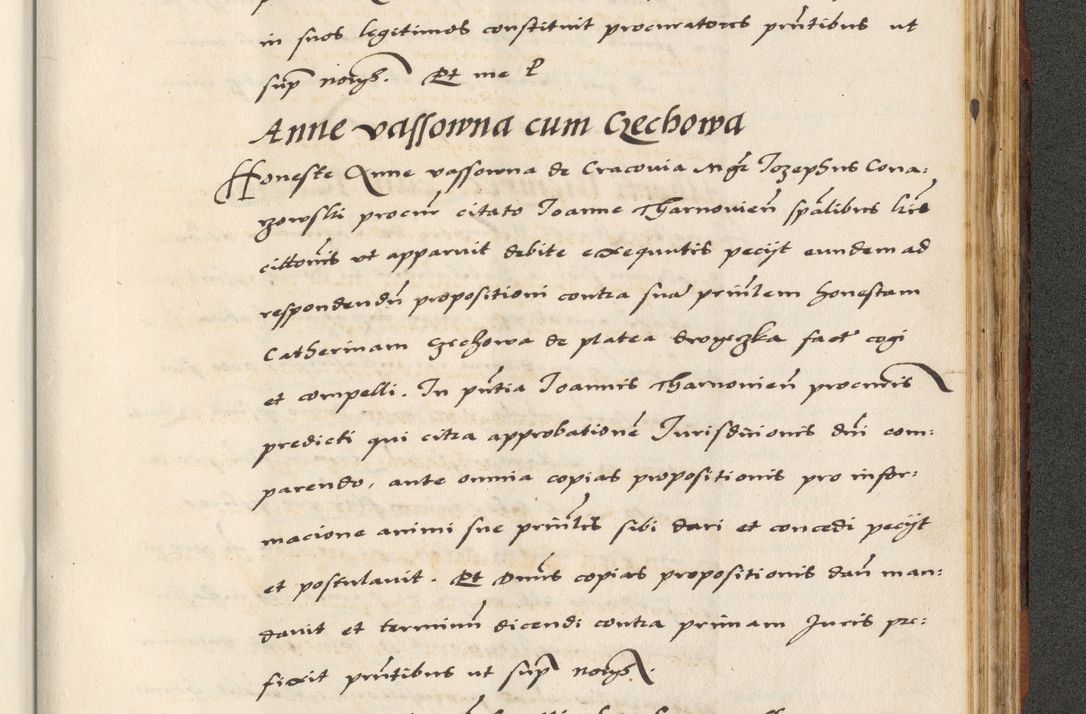 in suos legitimos constituit procuratores pn̄tibus ut
sup̄ noīs. Et me P
Anne vassowna cum Czechowa
Honeste Anne vassowna de Cracovia Mgr̄ Jozephus Cona:
rzowski procur̄ citato Joanne Tharnovien̄ sp̄alibus lr̄is
citton̄is ut apparuit debite exequutis pecijt eundem ad
respondendū propositioni contra suā prin̄lem honestam
Catherinam Czechowa de platea
fact cogi
et compelli. In pn̄tia Joannis Tharnovien̄ procur̄is
predicti qui citra approbationē Jurisdicionis dn̄i com:
parendo, ante omnia copias propositionis pro infor:
macione animi sue prin̄lis sibi dari et concedi pecijt
et postulavit. Et Dn̄us copias propositionis dari man:
davit et terminū dicendi contra primam Juris pre:
fixit pn̄tibus ut sup̄ noīs.